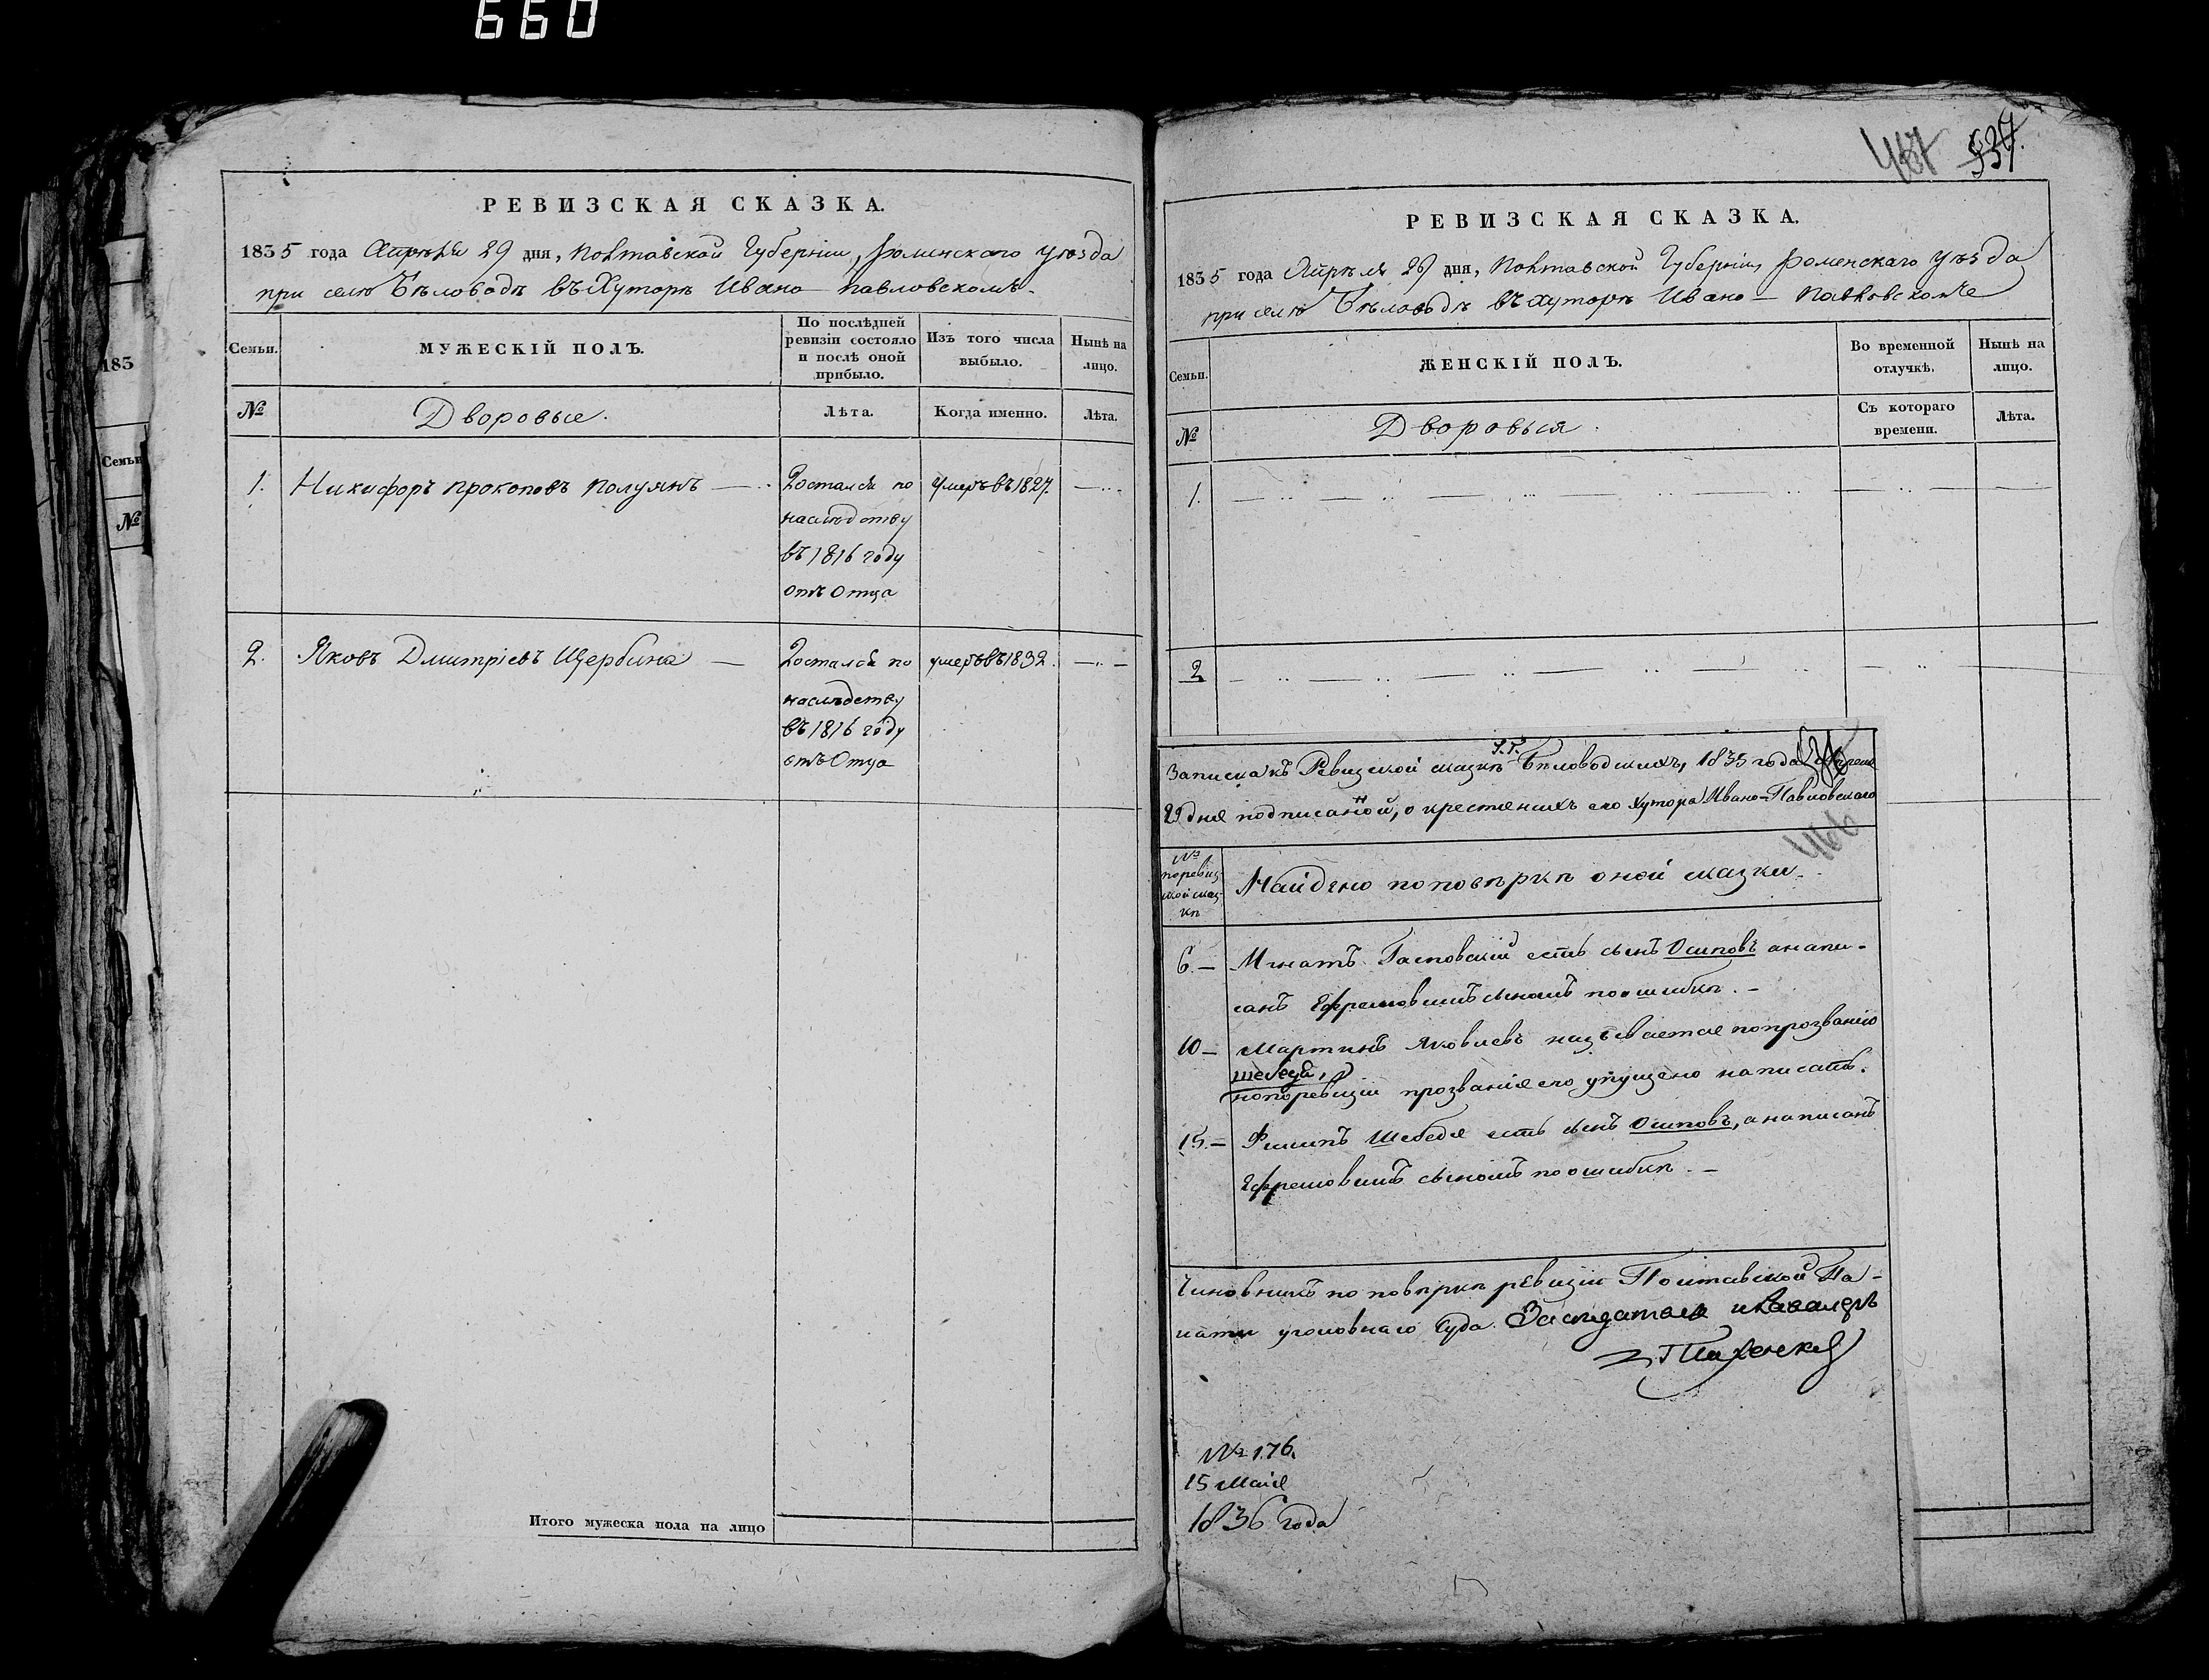 660
РЕВИЗСКАЯ СКАЗКА.
1835 года Апрѣля 29 дня, Полтавской Губерніи, Роменскаго уѣзда
при селѣ Бѣловодѣ въ Хуторѣ Ивано-Павловскомъ.
Семьи. МУЖЕСКІЙ ПОЛЪ. По послѣдней ревизіи состояло и послѣ оной прибыло. Изъ того числа выбыло. Нынѣ на лицо.
№ Дворовые. Лѣта. Когда именно. Лѣта.
1. Никифоръ Прокоповъ Полуянъ — Достался по умеръ въ 1827.
наслѣдству
въ 1816 году
отъ Отца
2. Яковъ Дмитріевъ Щербина — Достался по умеръ въ 1832.
наслѣдству
въ 1816 году
отъ Отца
Итого мужеска пола на лицо
183
Семьи
№
537.
РЕВИЗСКАЯ СКАЗКА.
1835 года Апрѣля 29 дня, Полтавской Губерніи, Роменскаго уѣзда
при селѣ Бѣловодѣ въ хуторѣ Ивано-Павловскомъ
Семьи. ЖЕНСКІЙ ПОЛЪ. Во временной отлучкѣ. Нынѣ на лицо.
№ Дворовыя. Съ котораго времени. Лѣта.
1.
2
Записка къ Ревизской сказкѣ Бѣловодскихъ, 1835 года Апреля
29 дня подписанной, о крестянихъ его хутора Ивано-Павловскаго
466
№ по ревизской сказкѣ
Найдено по повѣркѣ оной сказки.
6. — Игнатъ есть сынъ Осиповъ а напи-
санъ Ефремовымъ сыномъ по ошибкѣ. —
10 — Мартинъ Яковлевъ называется по прозванію
Шебедя,
но по ревизіи прозванія его упущено написать.
15. — Филипъ Шебедя есть сынъ Осиповъ, а написанъ
Ефремовымъ сыномъ по ошибкѣ. —
Чиновникъ по повѣркѣ ревизіи Полтавской Па-
латы уголовнаго Суда Засѣдатель и Кавалеръ
№ 176.
15 Маія
1836 Года